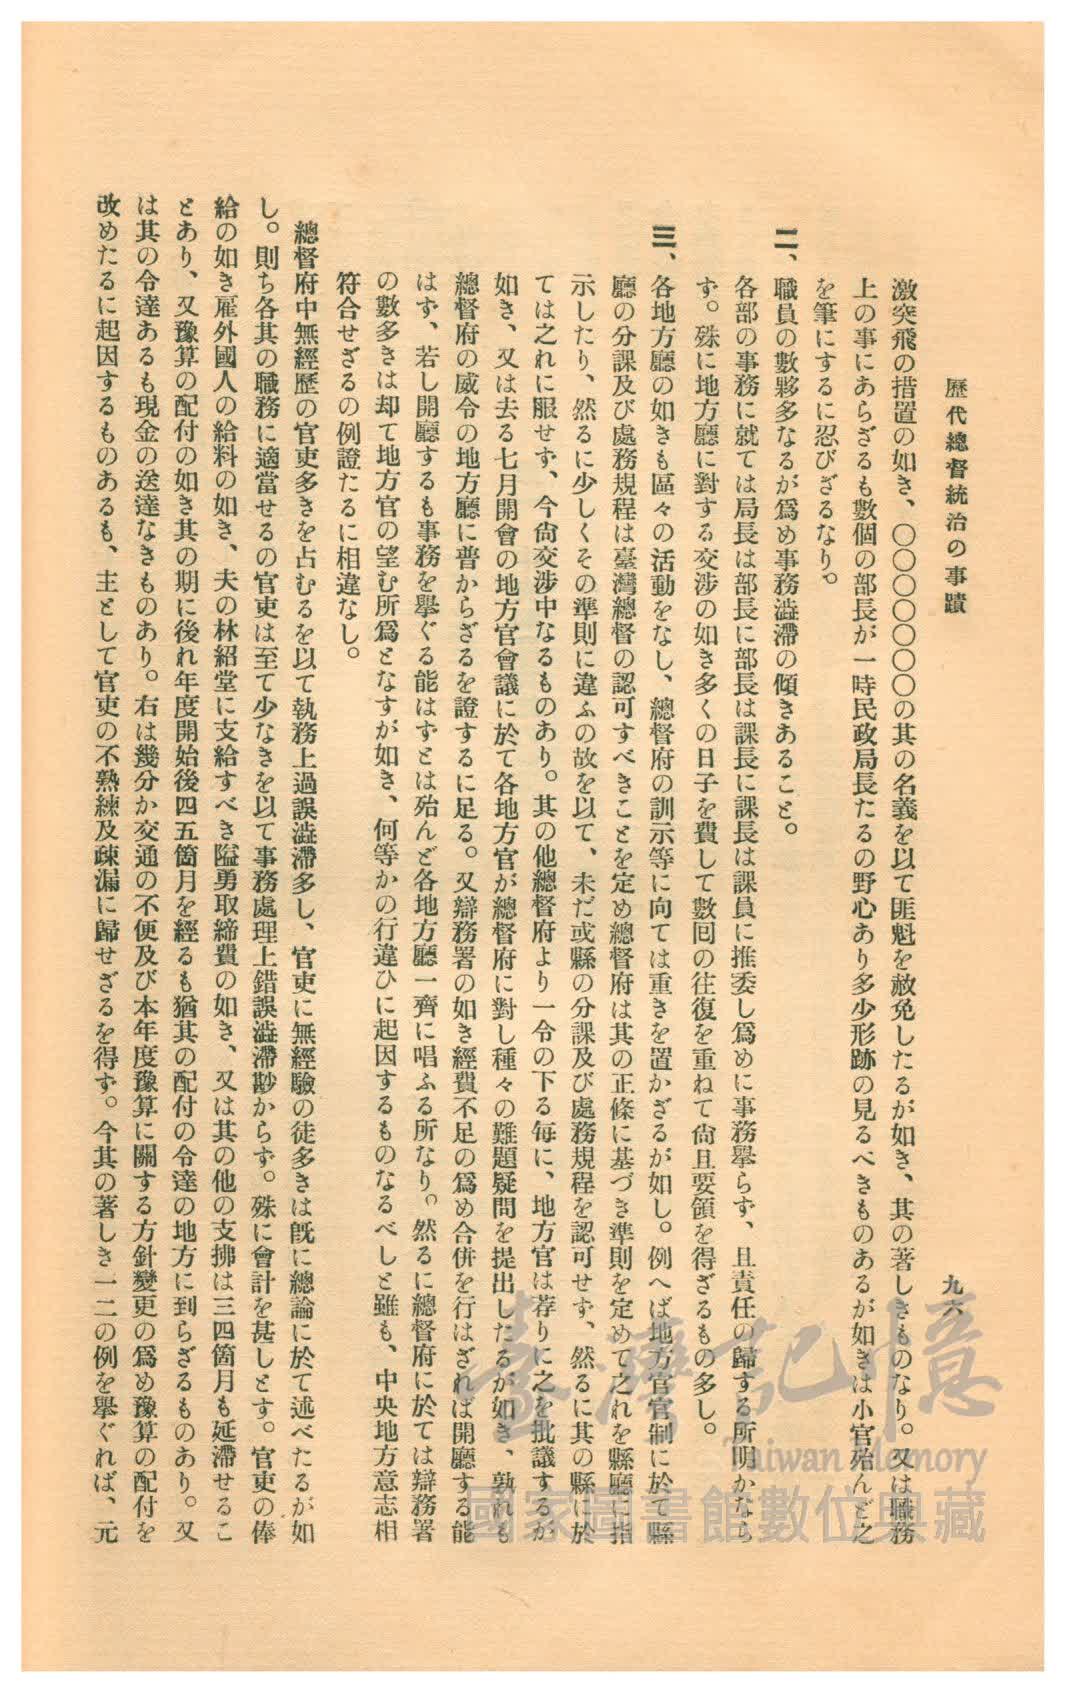 歷代總督統治の事蹟
九六
激突飛の措置の如き、〇〇〇〇〇〇〇〇の其の名義を以て匪魁を赦免したるが如き、其の著しきものなり。又は職務
上の事にあらざるも數個の部長が一時民政局長たるの野心あり多少形跡の見るべきものあるが如きは小官殆んど之
を筆にするに忍びざるなり。
二、職員の數夥多なるが爲め事務澁滯の傾きあること。
各部の事務に就ては局長は部長に部長は課長に課長は課員に推委し爲めに事務擧らず、且責任の歸する所明かなら
ず。殊に地方廳に對する交涉の如き多くの日子を費して數回の往復を重ねて尙且要領を得ざるもの多し。
三、各地方廳の如きも區々の活動をなし、總督府の訓示等に向ては重きを置かざるが如し。例へば地方官官制に於て縣
廳の分課及び處務規程は臺灣總督の認可すべきことを定め總督府は其の正條に基づき準則を定めて之れを縣廳に指
示したり、然るに少しくその準則に違ふの故を以て、未だ或縣の分課及び處務規程を認可せず、然るに其の縣に於
ては之れに服せず、今尙交涉中なるものあり。其の他總督府より一令の下る每に、地方官は荐りに之を批議するが
如き、又は去る七月開會の地方官會議に於て各地方官が總督府に對し種々の難題疑問を提出したるが如き、孰れも
總督府の威令の地方廳に普からざるを證するに足る。又辯務署の如き經費不足の爲め合併を行はざれば開廳する能
はず、若し開廳するも事務を擧ぐる能はずとは殆んど各地方廳一齊に唱ふる所なり。然るに總督府に於ては辯務署
の數多きは却て地方官の望む所爲となすが如き、何等かの行違ひに起因するものなるべしと雖も、中央地方意志相
符合せざるの例證たるに相違なし。
總督府中無經歷の官吏多きを占むるを以て執務上過誤澁滯多し、官吏に無經驗の徒多きは旣に總論に於て述べたるが如
し。則ち各其の職務に適當せるの官吏は至て少なきを以て事務處理上錯誤澁滯尠からず。殊に會計を甚しとす。官吏の俸
給の如き雇外國人の給料の如き、夫の林紹堂に支給すべき隘勇取締費の如き、又は其の他の支拂は三四箇月も延滯せるこ
とあり、又豫算の配付の如き其の期に後れ年度開始後四五箇月を經るも猶其の配付の令達の地方に到らざるものあり。又
は其の令達あるも現金の送達なきものあり。右は幾分か交通の不便及び本年度豫算に關する方針變更の爲め豫算の配付を
改めたるに起因するものあるも、主として官吏の不熟練及疎漏に歸せざるを得ず。今其の著しき一二の例を擧ぐれば、元
臺灣記憶
Taiwan Memory
國家圖書館數位典藏